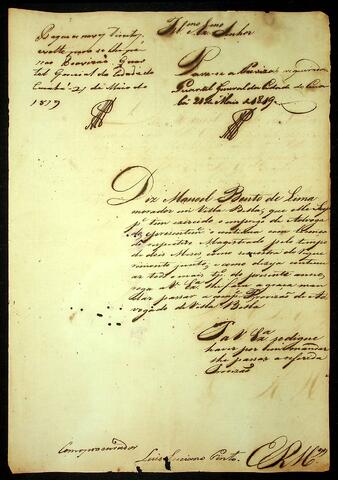 Pague os novos Direitos,
e volte para se lhe pas-
sar Provizão. Quar-
tel General da Cidade do
Cuiabá 21 de Maio de
1819
Illmo Exmo Senhor
Passe-se a Provizão requerida
Quartel General da Cidade de Cuia-
bá 21 de Maio de 1819.
Diz Manoel Bento de Lima
morador em Villa Bella, que elle Supp
te tem exercido o emprego de Advoga
do, e continua com licença
do respectivo Magistrado pelo tempo
de dois Mezes, como mostra do reque
rimento junto; e como deseja continu
ar todo o mais tpo do prezente anno,
roga a V Exa lhe faça a graça man
dar passar a Provizão de Ad
vogado de Villa Bella
Pa V Exa se digne
haver por bem mandar
lhe passar a referida
Provizão
Como procurador
Luis Luciano Pinto.
E R Mce